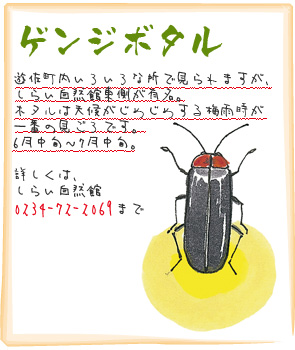 ゲンジボタル
遊佐町内いろいろな所で見られますが、
しらい自然館東側が有名。
ホタルは天候がじわじわする梅雨時が
一番の見ごろです。
6月中旬~7月中旬。
詳しくは、
しらい自然館
0234-72-2069まで